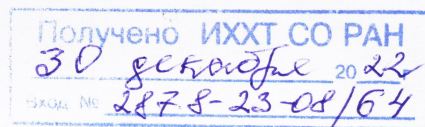 Получено ИХХТ СО РАН
30 декабря 2022г
Вход. № 2878-23-08/64